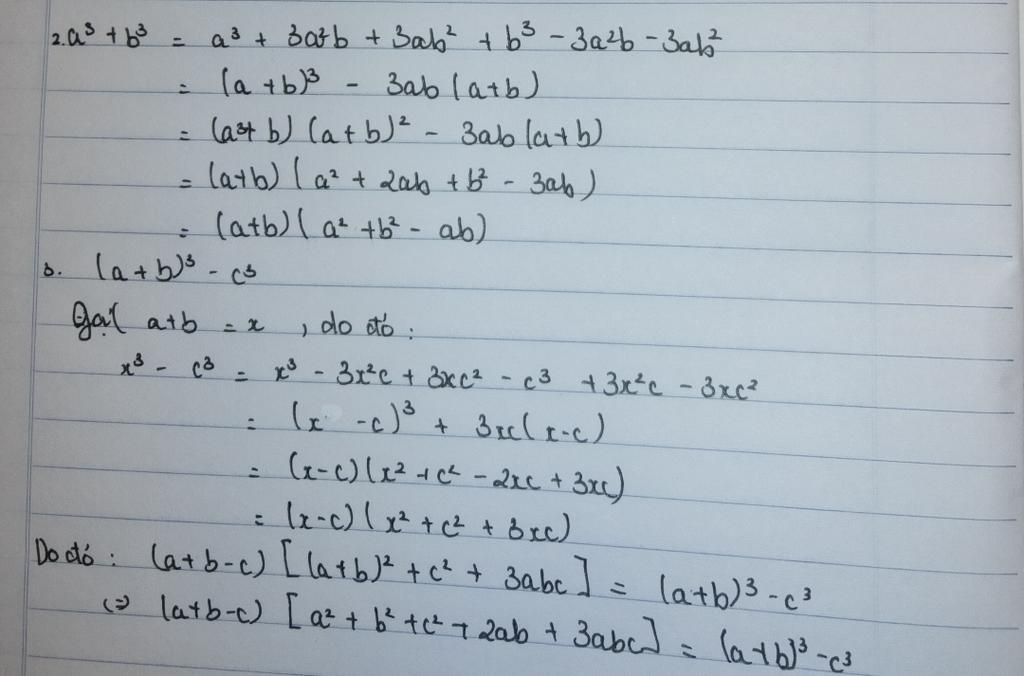 2. a³ + b³ = a³ + 3a²b + 3ab² + b³ - 3a²b - 3ab²
= (a + b)³ - 3ab (a+b)
= (a + b) (a+b)² - 3ab (a+b)
= (a+b) ( a² + 2ab + b² - 3ab )
= (a+b) ( a² + b² - ab)
3. (a + b)³ - c³
Gọi a+b = x , do đó :
x³ - c³ = x³ - 3x²c + 3xc² - c³ + 3x²c - 3xc²
= (x - c)³ + 3xc( x-c)
= (x-c) (x² + c² - 2xc + 3xc)
= (x-c) ( x² + c² + 3xc)
Do đó : (a+b-c) [ (a+b)² + c² + 3abc ] = (a+b)³ - c³
(=) (a+b-c) [ a² + b² + c² + 2ab + 3abc] = (a+b)³ - c³